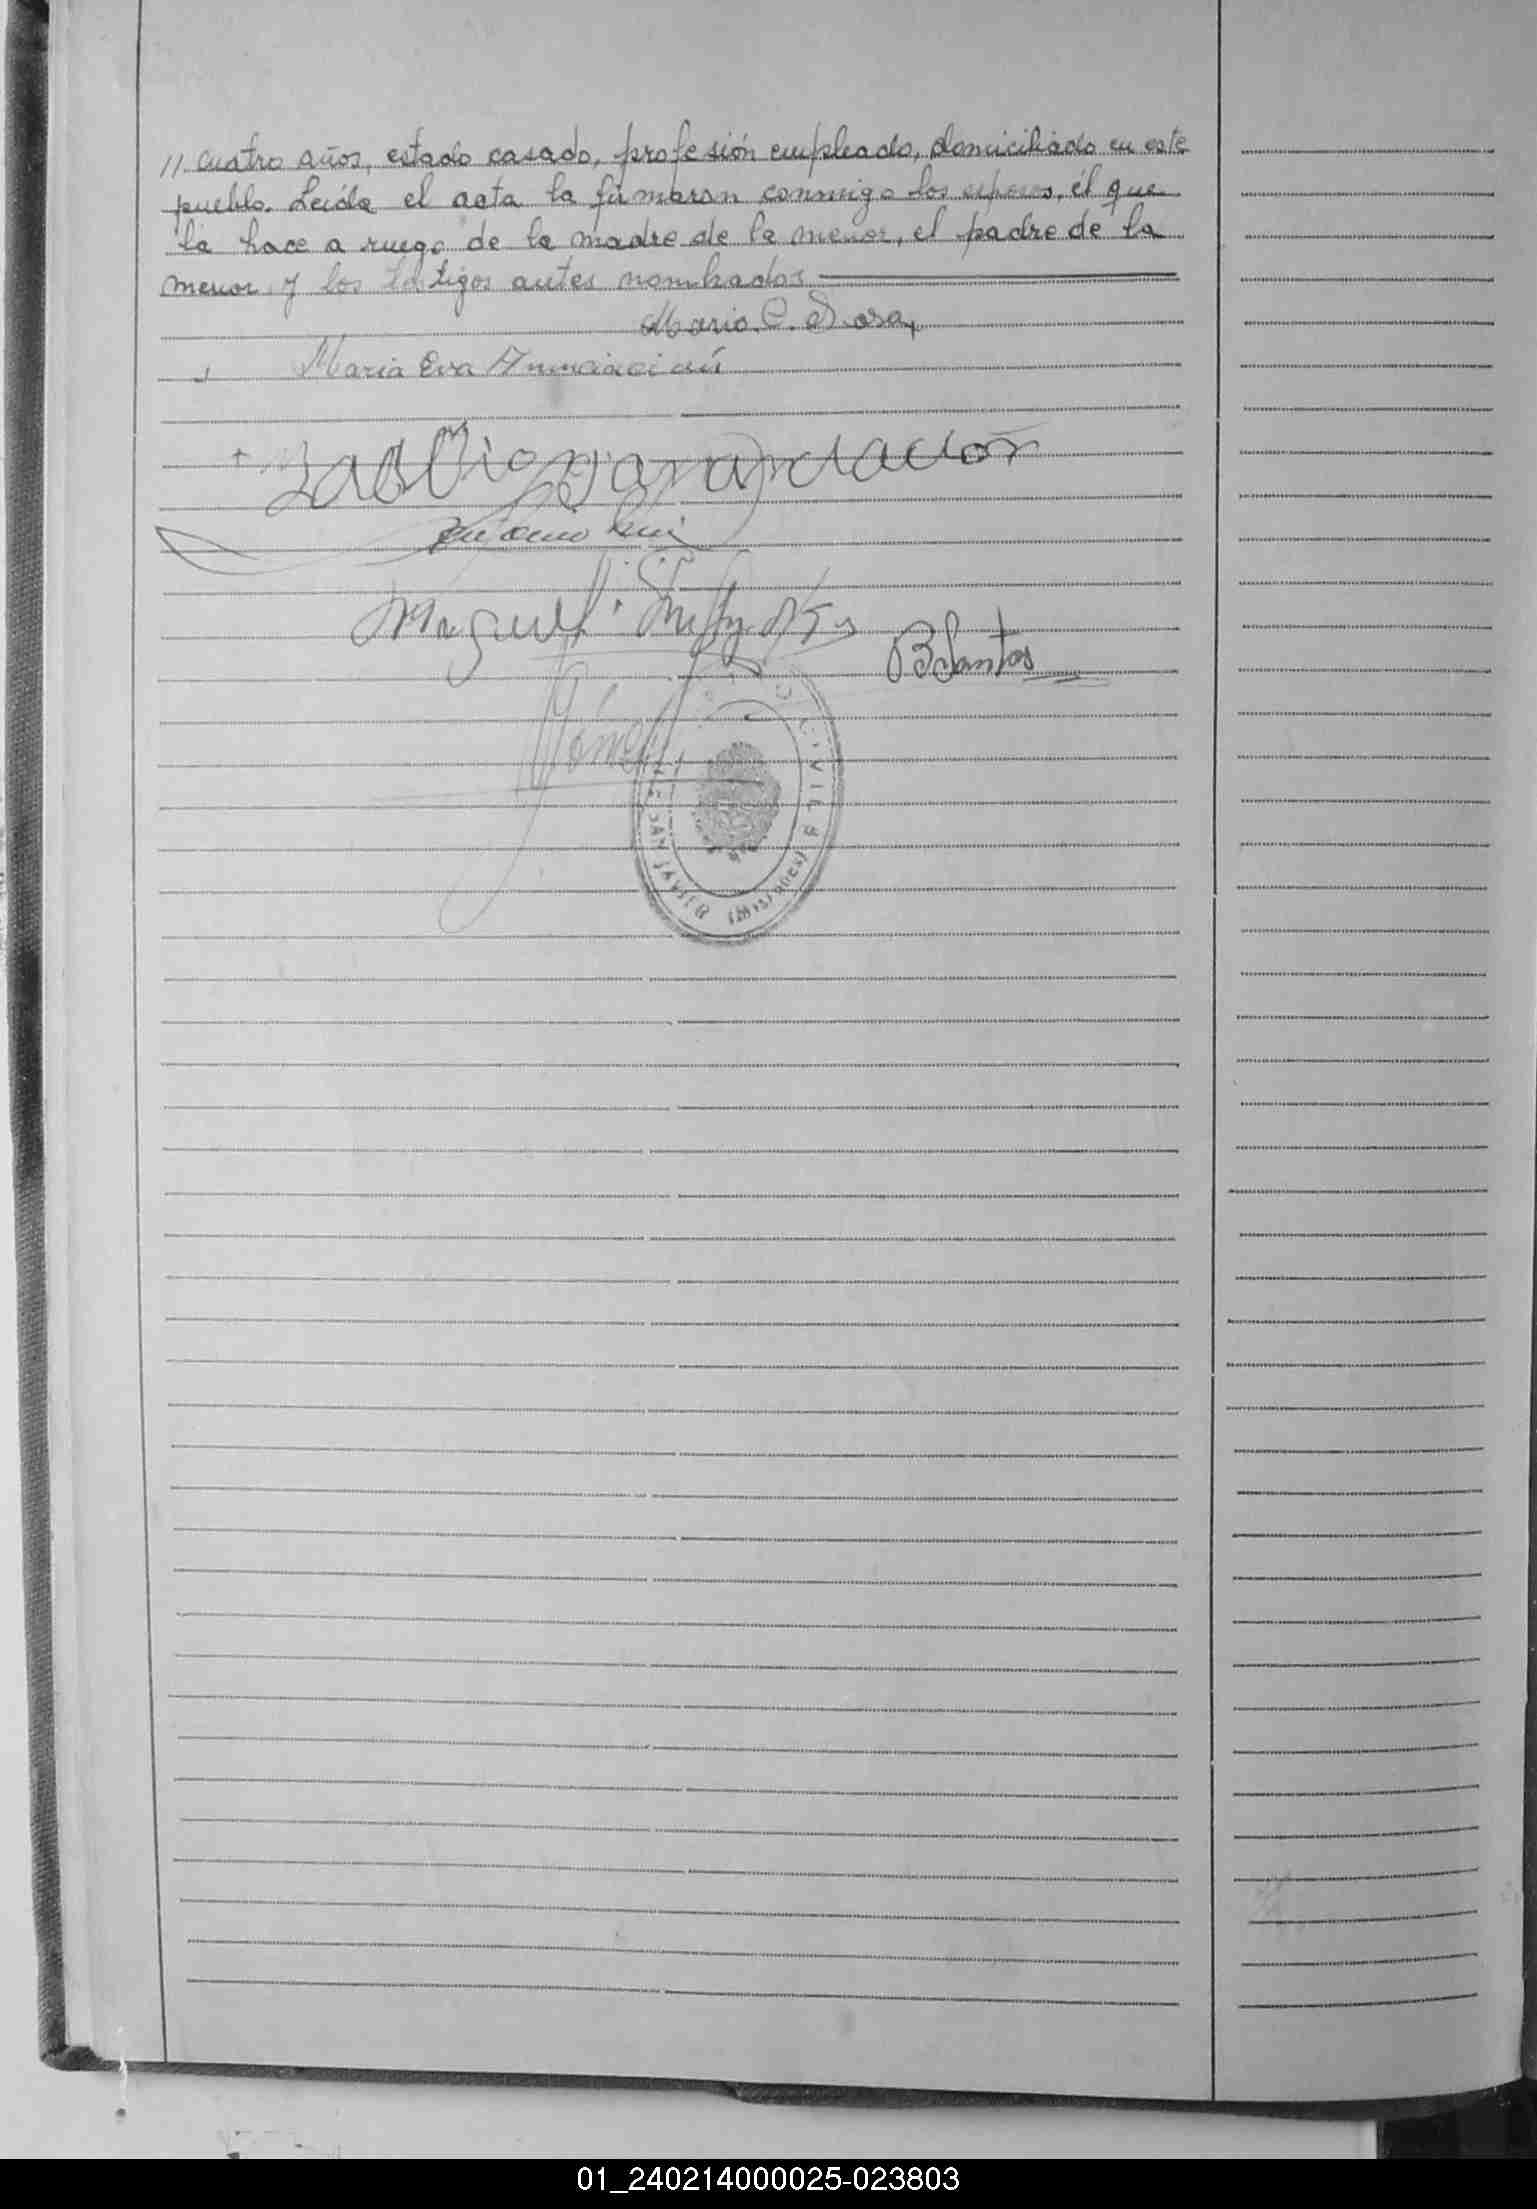 // cuatro años, estado casado, profesión empleado, domiciliado en este
pueblo. Leída el acta la firmaron conmigo los esposos, él que
la hace a ruego de la madre de la menor, el padre de la
menor y los testigos antes nombrados
Mario C. Sosa
Maria Eva Anunciación
Miguel
B Santos
Gómez
CIVIL
SAN JAVIER (Misiones)
01_240214000025-023803